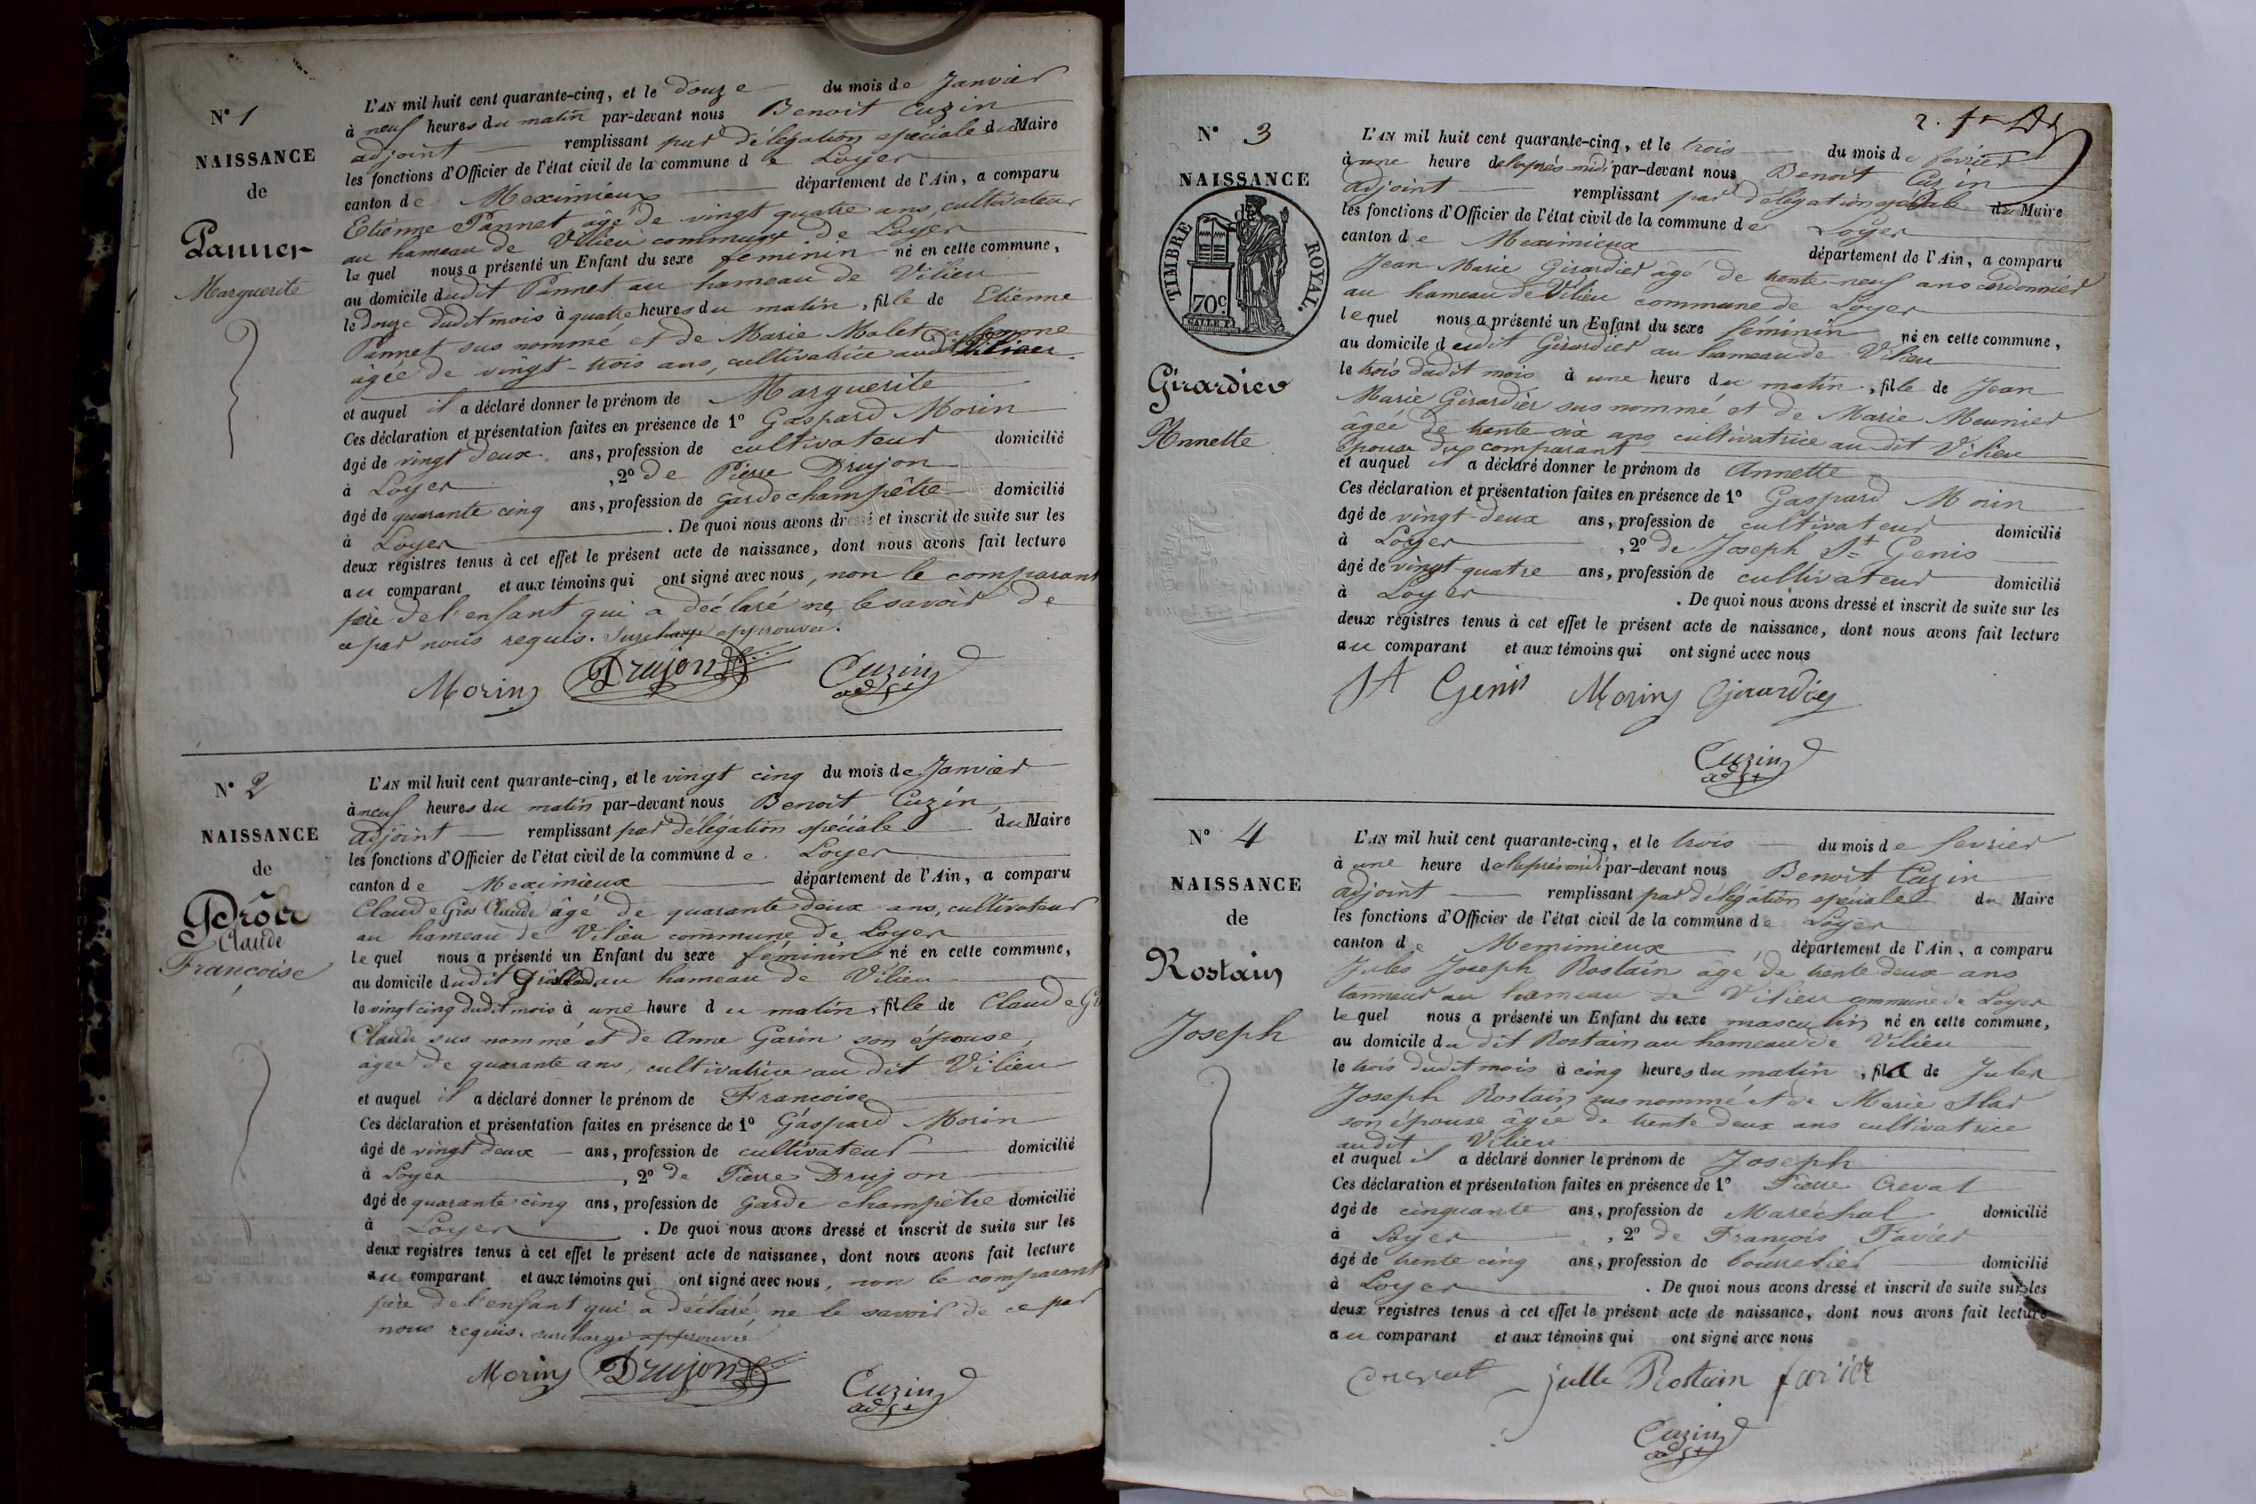 N° 1
NAISSANCE
de
Pannet
Marguerite
L'AN mil huit cent quarante-cinq, et le douze du mois de Janvier
à neuf heures du matin par-devant nous Benoit Cuzin
adjoint remplissant par délégation spéciale du Maire
les fonctions d'Officier de l'état civil de la commune de Loyer
canton de Meximieux département de l'Ain, a comparu
Etienne Pannet âgé de vingt quatre ans, cultivateur
au hameau de Vilieu commune de Loyer
lequel nous a présenté un Enfant du sexe feminin né en cette commune,
au domicile dudit Pannet au hameau de Vilieu
le douze dudit mois à quatre heures du matin, fille de Etienne
Pannet sus nommé et de Marie Malet sa femme
âgée de vingt-trois ans, cultivatrice audit Vilieu.
et auquel il a déclaré donner le prénom de Marguerite
Ces déclaration et présentation faites en présence de 1° Gaspard Morin
âgé de vingt deux ans, profession de cultivateur domicilié
à Loyer, 2° de Pierre Drujon
âgé de quarante cinq ans, profession de garde champêtre domicilié
à Loyer. De quoi nous avons dressé et inscrit de suite sur les
deux registres tenus à cet effet le présent acte de naissance, dont nous avons fait lecture
au comparant et aux témoins qui ont signé avec nous, non le comparant
père de l'enfant qui a déclaré ne le savoir de
ce par nous requis. Surcharge approuvée.
Morin Drujon Cuzin
adjt
N° 2
NAISSANCE
de
Gros
Claude
Françoise
L'AN mil huit cent quarante-cinq, et le vingt cinq du mois de Janvier
à neuf heures du matin par-devant nous Benoit Cuzin,
adjoint remplissant par délégation spéciale du Maire
les fonctions d'Officier de l'état civil de la commune de Loyer
canton de Meximieux département de l'Ain, a comparu
Claude Gros Claude âgé de quarante deux ans, cultivateur
au hameau de Vilieu commune de Loyer
lequel nous a présenté un Enfant du sexe féminin né en cette commune,
au domicile dudit au hameau de Vilieu
le vingt cinq dudit mois à une heure du matin, fille de Claude Gros
Claude sus nommé et de Anne Garin son épouse,
âgée de quarante ans, cultivatrice au dit Vilieu
et auquel il a déclaré donner le prénom de Françoise
Ces déclaration et présentation faites en présence de 1° Gaspard Morin
âgé de vingt deux ans, profession de cultivateur domicilié
à Loyer, 2° de Pierre Drujon
âgé de quarante cinq ans, profession de garde champêtre domicilié
à Loyer. De quoi nous avons dressé et inscrit de suite sur les
deux registres tenus à cet effet le présent acte de naissance, dont nous avons fait lecture
au comparant et aux témoins qui ont signé avec nous, non le comparant
père de l'enfant qui a déclaré ne le savoir de ce par
nous requis. surcharge approuvée
Morin Drujon Cuzin
adjt
2.
N° 3
NAISSANCE
de
TIMBRE ROYAL.
70c
Girardier
Annette
L'AN mil huit cent quarante-cinq, et le trois du mois de fevrier
à une heure de l'après midi par-devant nous Benoit Cuzin
adjoint remplissant par délégation spéciale du Maire
les fonctions d'Officier de l'état civil de la commune de Loyer
canton de Meximieux département de l'Ain, a comparu
Jean Marie Girardier âgé de trente-neuf ans cordonnier
au hameau de Vilieu commune de Loyer
lequel nous a présenté un Enfant du sexe féminin né en cette commune,
au domicile dudit Girardier au hameau de Vilieu
le trois dudit mois à une heure du matin, fille de Jean
Marie Girardier sus nommé et de Marie Meunier
âgée de trente six ans cultivatrice au dit Vilieu
épouse du comparant
et auquel il a déclaré donner le prénom de Annette
Ces déclaration et présentation faites en présence de 1° Gaspard Morin
âgé de vingt-deux ans, profession de cultivateur domicilié
à Loyer, 2° de Joseph St Genis
âgé de vingt quatre ans, profession de cultivateur domicilié
à Loyer. De quoi nous avons dressé et inscrit de suite sur les
deux registres tenus à cet effet le présent acte de naissance, dont nous avons fait lecture
au comparant et aux témoins qui ont signé avec nous
St Genis Morin Girardier
Cuzin
adjt
N° 4
NAISSANCE
de
Rostain
Joseph
L'AN mil huit cent quarante-cinq, et le trois du mois de fevrier
à une heure de l'après midi par-devant nous Benoit Cuzin
adjoint remplissant par délégation spéciale du Maire
les fonctions d'Officier de l'état civil de la commune de Loyer
canton de Memimieux département de l'Ain, a comparu
Jules Joseph Rostain âgé de trente deux ans
tanneur au hameau de Vilieu commune de Loyer
lequel nous a présenté un Enfant du sexe masculin né en cette commune,
au domicile du dit Rostain au hameau de Vilieu
le trois dudit mois à cinq heures du matin, fils de Jules
Joseph Rostain sus nommé et de Marie
son épouse âgée de trente deux ans cultivatrice
audit Vilieu
et auquel il a déclaré donner le prénom de Joseph
Ces déclaration et présentation faites en présence de 1° Pierre Crevat
âgé de cinquante ans, profession de Maréchal domicilié
à Loyer, 2° de François Favier
âgé de trente cinq ans, profession de bourrelier domicilié
à Loyer. De quoi nous avons dressé et inscrit de suite sur les
deux registres tenus à cet effet le présent acte de naissance, dont nous avons fait lecture
au comparant et aux témoins qui ont signé avec nous
Crevat julle Rostain favier
Cuzin
adjt